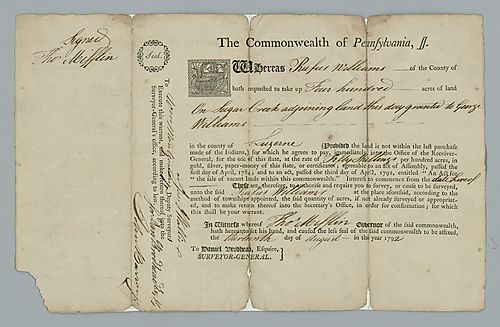 Signed
Tho Mifflin
Seal.
The Commonwealth of Pennsylvania, ſſ.
Whereas Rufus Williams of the County of
hath requested to take up Four hundred acres of land
On Sugar Creek adjoining land this day granted to George
Williams
in the county of Luzerne (Provided the land is not within the last purchase
made of the Indians,) for which he agrees to pay, immediately, into the Office of the Receiver-
General, for the use of this state, at the rate of Fifty Shillings per hundred acres, in
gold, silver, paper-money of this state, or certificates, agreeable to an Act of Assembly, passed the
first day of April, 1784, and to an act, passed the third day of April, 1792, entitled "An Act for
the sale of vacant lands within this commonwealth." Interest to commence from the date hereof
These are, therefore, to authorise and require you to survey, or cause to be surveyed,
unto the said Rufus Williams at the place aforesaid, according to the
method of townships appointed, the said quantity of acres, if not already surveyed or appropriat-
ed, and to make return thereof into the Secretary's Office, in order for confirmation; for which
this shall be your warrant.
In Witness whereof Tho Mifflin Governor of the said commonwealth,
hath hereunto set his hand, and caused the less seal of the said commonwealth to be affixed,
the day of August in the year 1792
To Daniel Brodhead, Esquire,
SURVEYOR-GENERAL.
To Deputy Surveyor
Execute this warrant, and make return thereof into the
Surveyor-General's office, according to law.